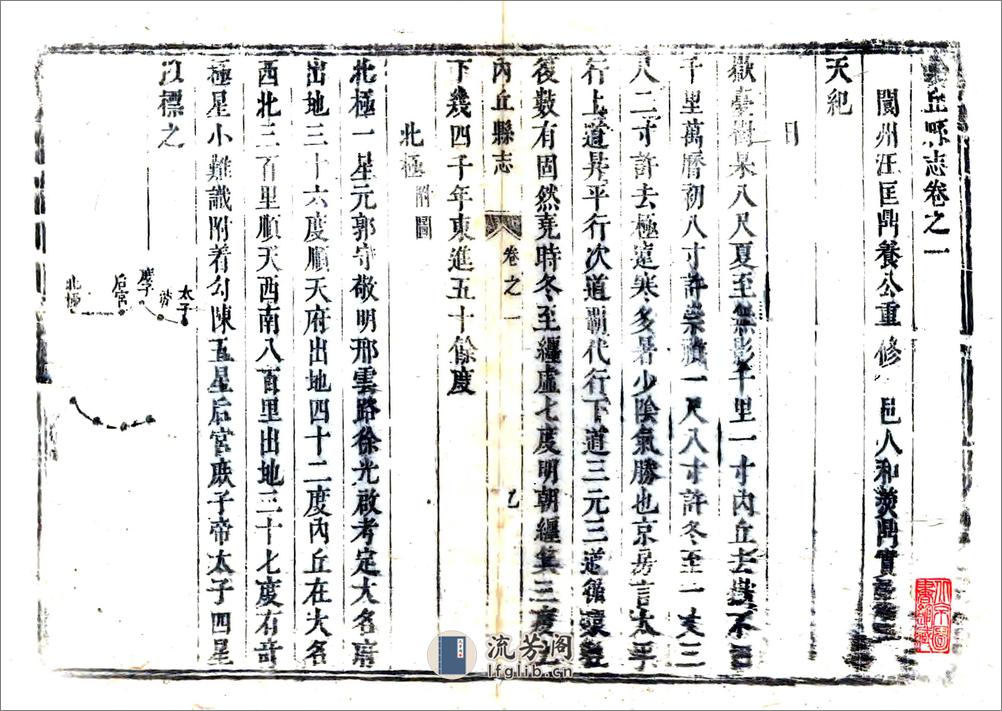 內丘縣志卷之一
閬州汪匡鼎養公重修 邑人和羹鼎實
天紀
日
嶽臺測杲八尺夏至無影千里一寸內丘去嶽不
千里萬曆初八寸許崇禎一尺八寸許冬至一丈三
尺二寸許去極遠寒多暑少陰氣勝也京房言太平
行上道昇平行次道覇代行下道三元三道循環
後數有固然堯時冬至纏虛七度明朝纏箕三度
內丘縣志 卷之一 乙
下幾四千年東進五十餘度
北極 附圖
北極一星元郭守敬明邢雲路徐光啟考定大名府
出地三十六度順天府出地四十二度內丘在大名
西北三百里順天西南八百里出地三十七度有奇
極星小難識附着勾陳五星后宮庶子帝太子四星
以標之
太子
帝
庶子
后宮
北極
流芳阁
lfglib.cn